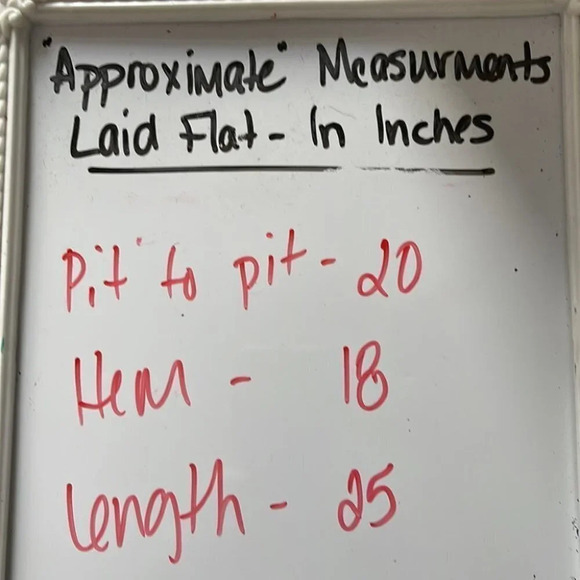 "Approximate" Measurments
Laid Flat - In Inches
Pit to pit - 20
Hem - 18
length - 25